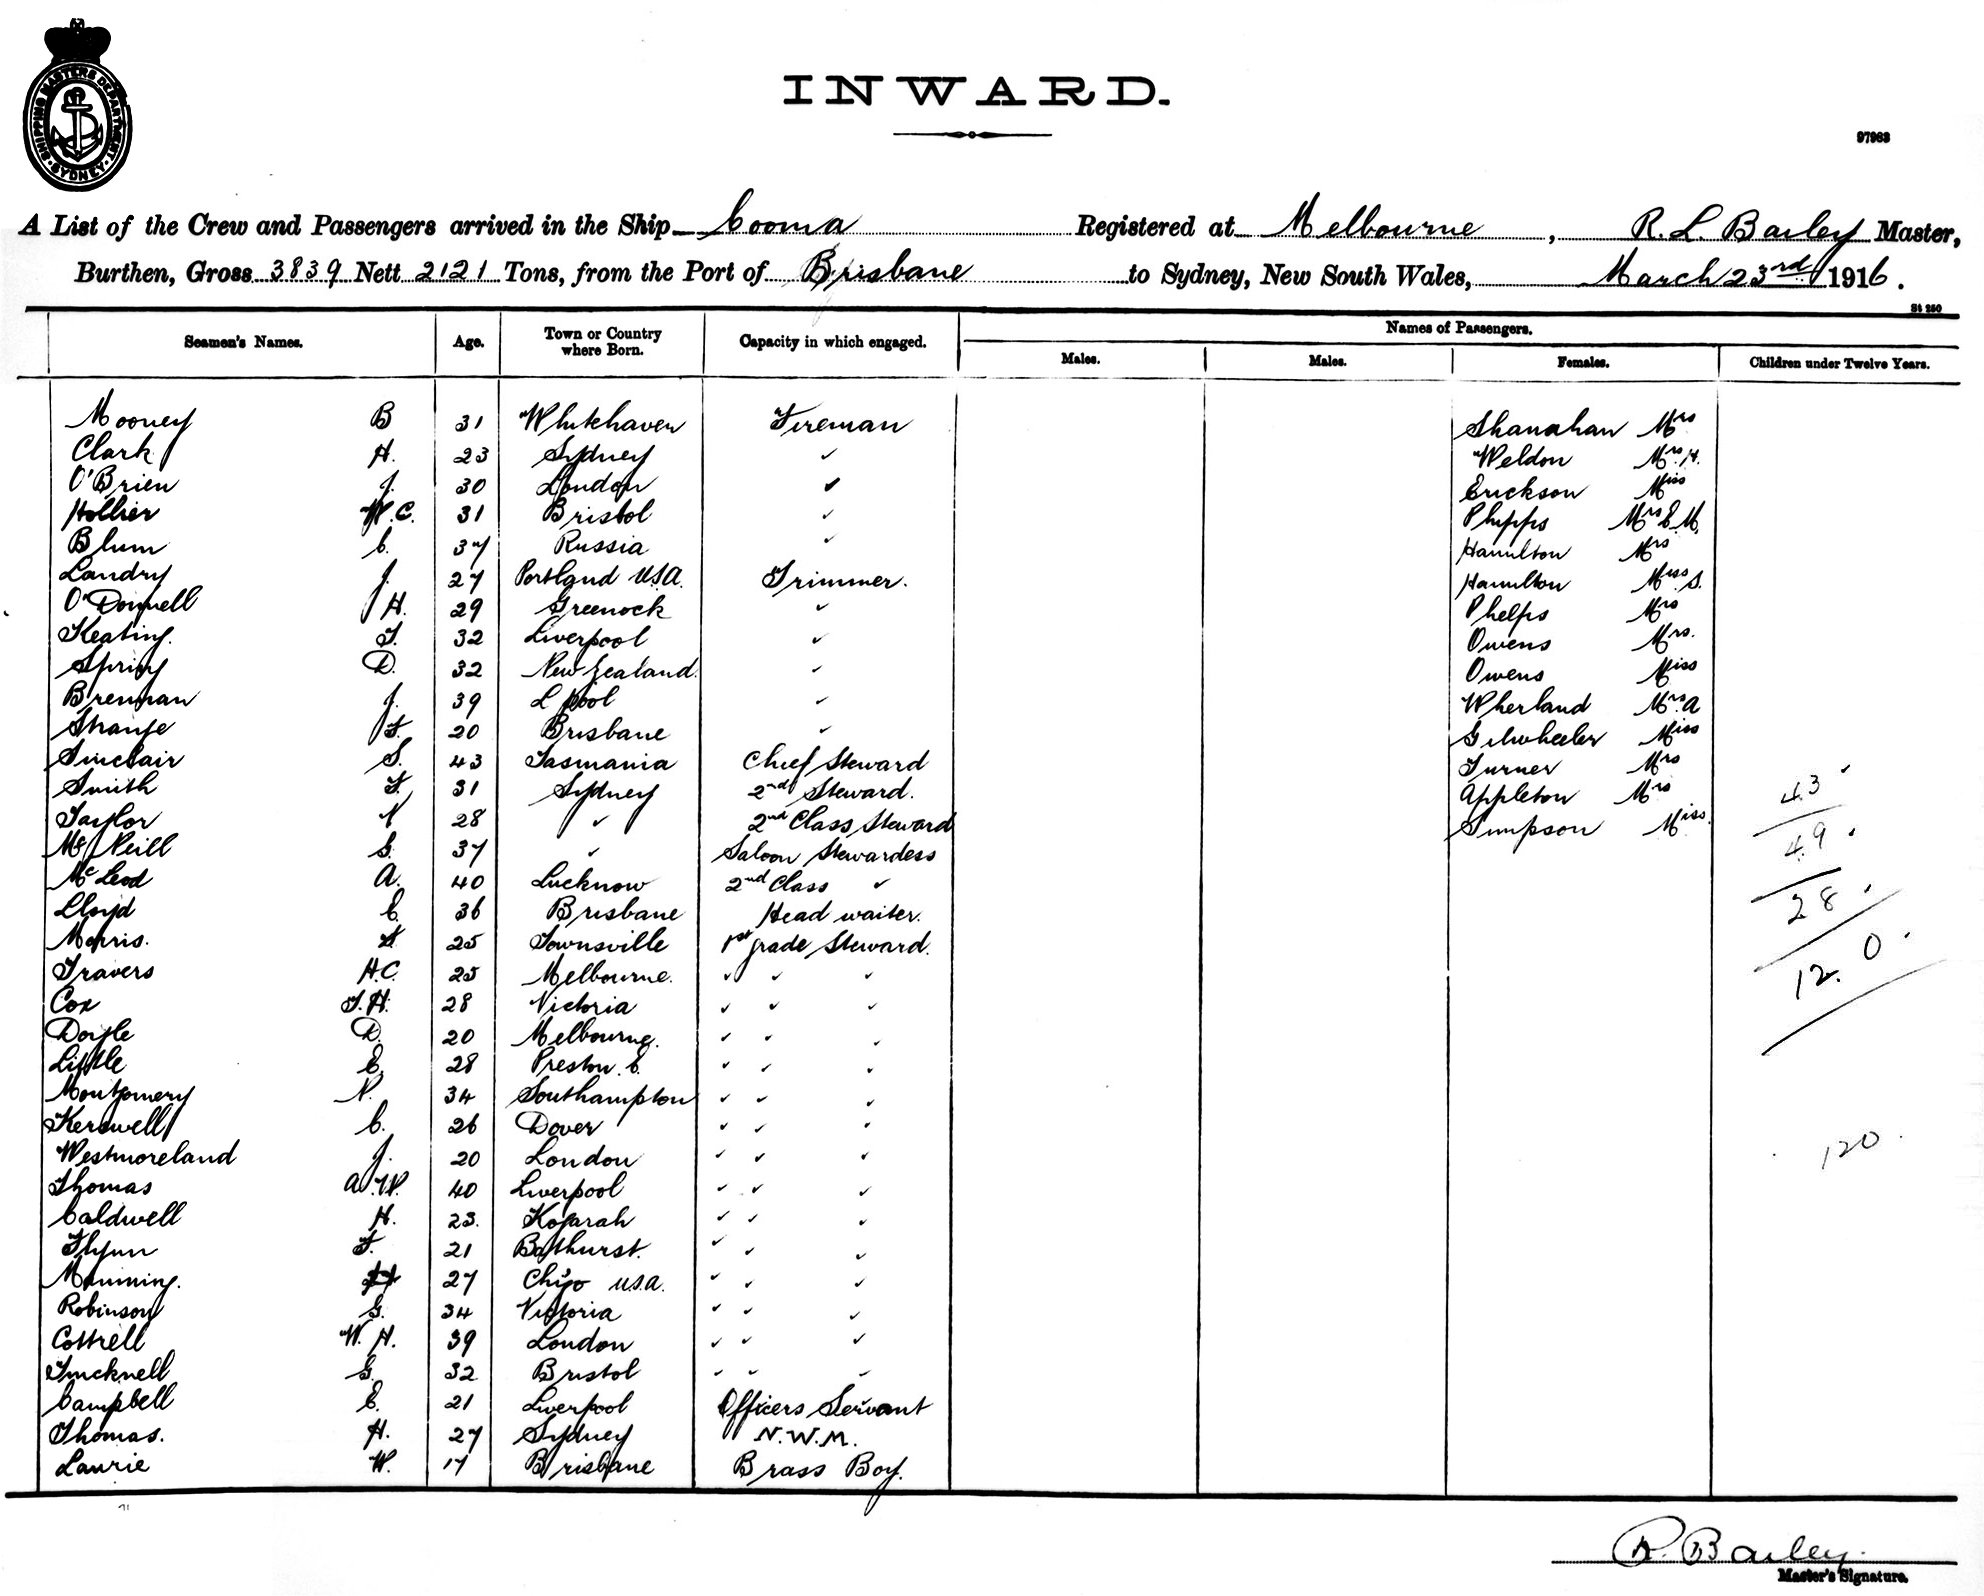 SHIPPING MASTERS DEPARTMENT SYDNEY
INWARD.
97963
A List of the Crew and Passengers arrived in the Ship Cooma Registered at Melbourne, R. L. Bailey Master,
Burthen, Gross 3839 Nett 2121 Tons, from the Port of Brisbane to Sydney, New South Wales, March 23rd 1916.
St 250
Seamen's Names. Age. Town or Country where Born. Capacity in which engaged. Names of Passengers.
Males. Males. Females. Children under Twelve Years.
Mooney B 31 Whitehaven Fireman Shanahan Mrs
Clark H. 23 Sydney ✓ Weldon Mrs. H.
O'Brien J. 30 London ✓ Erickson Miss
Hollier W.C. 31 Bristol ✓ Phipps Mrs E.M.
Blum C. 37 Russia ✓ Hamilton Mrs
Landry J. 27 Portland U.S.A. Trimmer. Hamilton Miss. S.
O'Donnell H. 29 Greenock ✓ Phelps Mrs
Keating. T. 32 Liverpool ✓ Owens Mrs.
Spring D. 32 New Zealand. ✓ Owens Miss
Brennan J. 39 L'pool ✓ Wherland Mrs. A
Strange F. 20 Brisbane ✓ Miss
Sinclair S. 43 Tasmania Chief Steward Turner Mrs
Smith F. 31 Sydney 2nd Steward. Appleton Mrs 43
Taylor N 28 ✓ 2nd Class Steward Simpson Miss. 49
McNeill G. 37 ✓ Saloon Stewardess
McLeod A. 40 Lucknow 2nd Class ✓ 28
Lloyd E. 36 Brisbane Head waiter.
Morris. 25 Townsville 1st grade Steward. 120
Travers H.C. 25 Melbourne. ✓ ✓ ✓
Cox T.H. 28 Victoria ✓ ✓ ✓
Doyle D. 20 Melbourne. ✓ ✓ ✓
Little E. 28 Preston. E. ✓ ✓ ✓
Montgomery N. 34 Southampton ✓ ✓ ✓
Kerswell C. 26 Dover ✓ ✓ ✓
Westmoreland J. 20 London ✓ ✓ ✓ 120
Thomas A.W. 40 Liverpool ✓ ✓ ✓
Caldwell H. 23. Kogarah ✓ ✓ ✓
Flynn F. 21 Bathurst. ✓ ✓ ✓
Manning. H 27 Chigo U.S.A. ✓ ✓ ✓
Robinson G. 34 Victoria ✓ ✓ ✓
Cottrell W. H. 39 London ✓ ✓ ✓
Tincknell G. 32 Bristol ✓ ✓ ✓
Campbell E. 21 Liverpool Officers Servant
Thomas. H. 27 Sydney N.W.M.
Laurie W. 17 Brisbane Brass Boy.
R. Bailey.
Master's Signature.